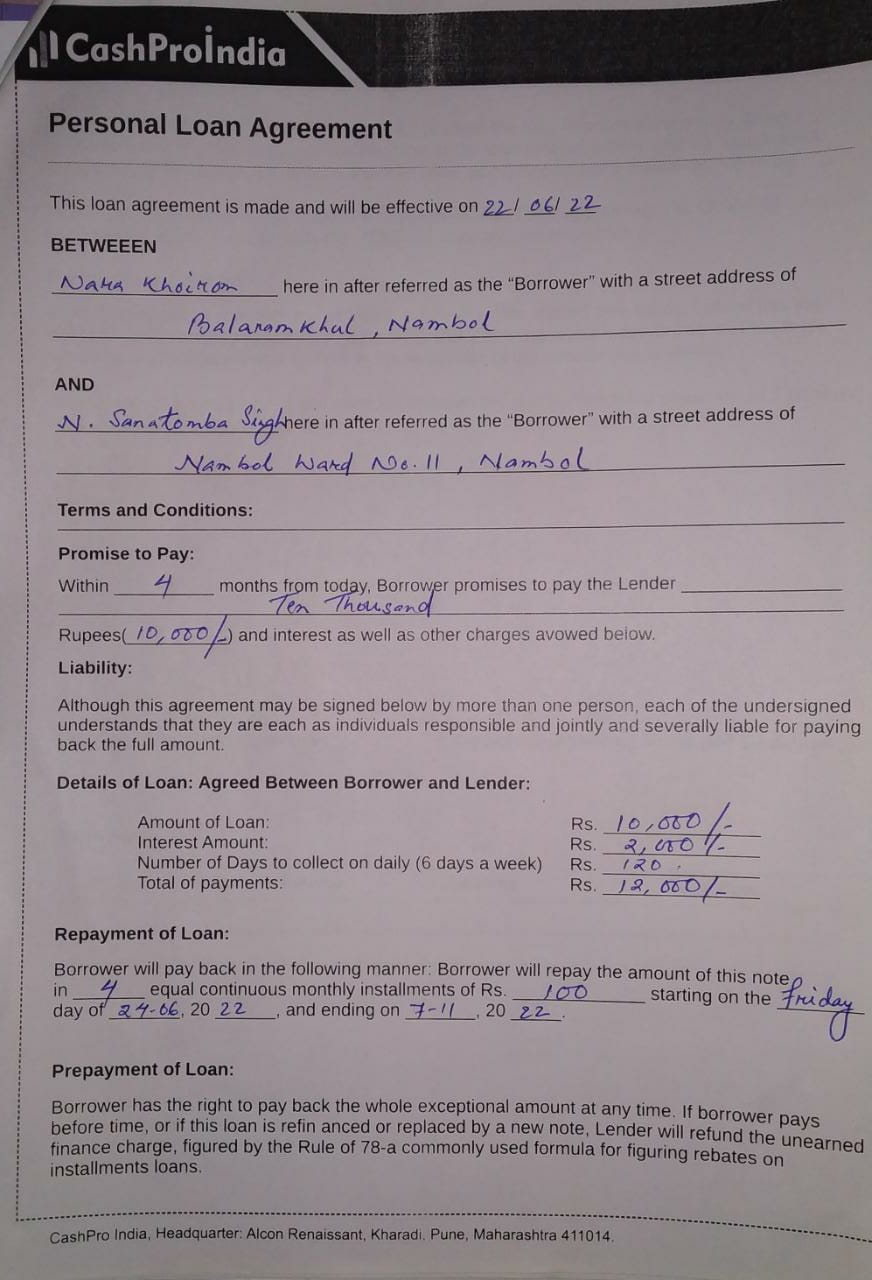 CashProIndia
Personal Loan Agreement
This loan agreement is made and will be effective on 22/ 06/ 22
BETWEEEN
Nara Khoirom here in after referred as the “Borrower” with a street address of
Balaram Khul, Nambol
AND
N. Sanatomba Singh here in after referred as the “Borrower” with a street address of
Nambol Ward No. 11, Nambol
Terms and Conditions:
Promise to Pay:
Within 4 months from today, Borrower promises to pay the Lender
Ten Thousand
Rupees( 10,000/-) and interest as well as other charges avowed below.
Liability:
Although this agreement may be signed below by more than one person, each of the undersigned
understands that they are each as individuals responsible and jointly and severally liable for paying
back the full amount.
Details of Loan: Agreed Between Borrower and Lender:
Amount of Loan: Rs. 10,000/-
Interest Amount: Rs. 2,000/-
Number of Days to collect on daily (6 days a week) Rs. 120.
Total of payments: Rs. 12,000/-
Repayment of Loan:
Borrower will pay back in the following manner: Borrower will repay the amount of this note
in 4 equal continuous monthly installments of Rs. 100 starting on the friday
day of 24-06, 20 22, and ending on 7-11, 20 22.
Prepayment of Loan:
Borrower has the right to pay back the whole exceptional amount at any time. If borrower pays
before time, or if this loan is refin anced or replaced by a new note, Lender will refund the unearned
finance charge, figured by the Rule of 78-a commonly used formula for figuring rebates on
installments loans.
CashPro India, Headquarter: Alcon Renaissant, Kharadi, Pune, Maharashtra 411014.